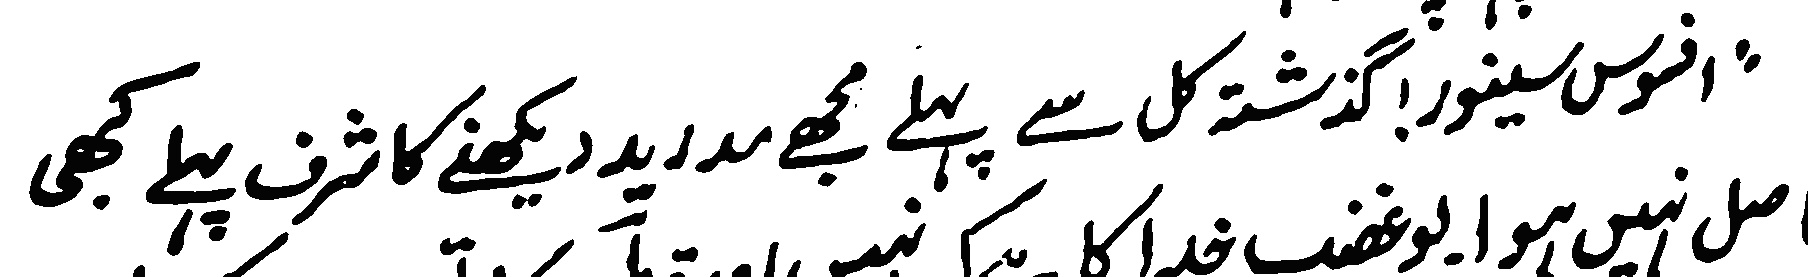 "افسوس سینور! گذشتہ کل سے پہلے مجھے مدرید دیکھنے کا شرف پہلے کبھی
اصل نہیں ہوا یو غضب خدا کا نہیں